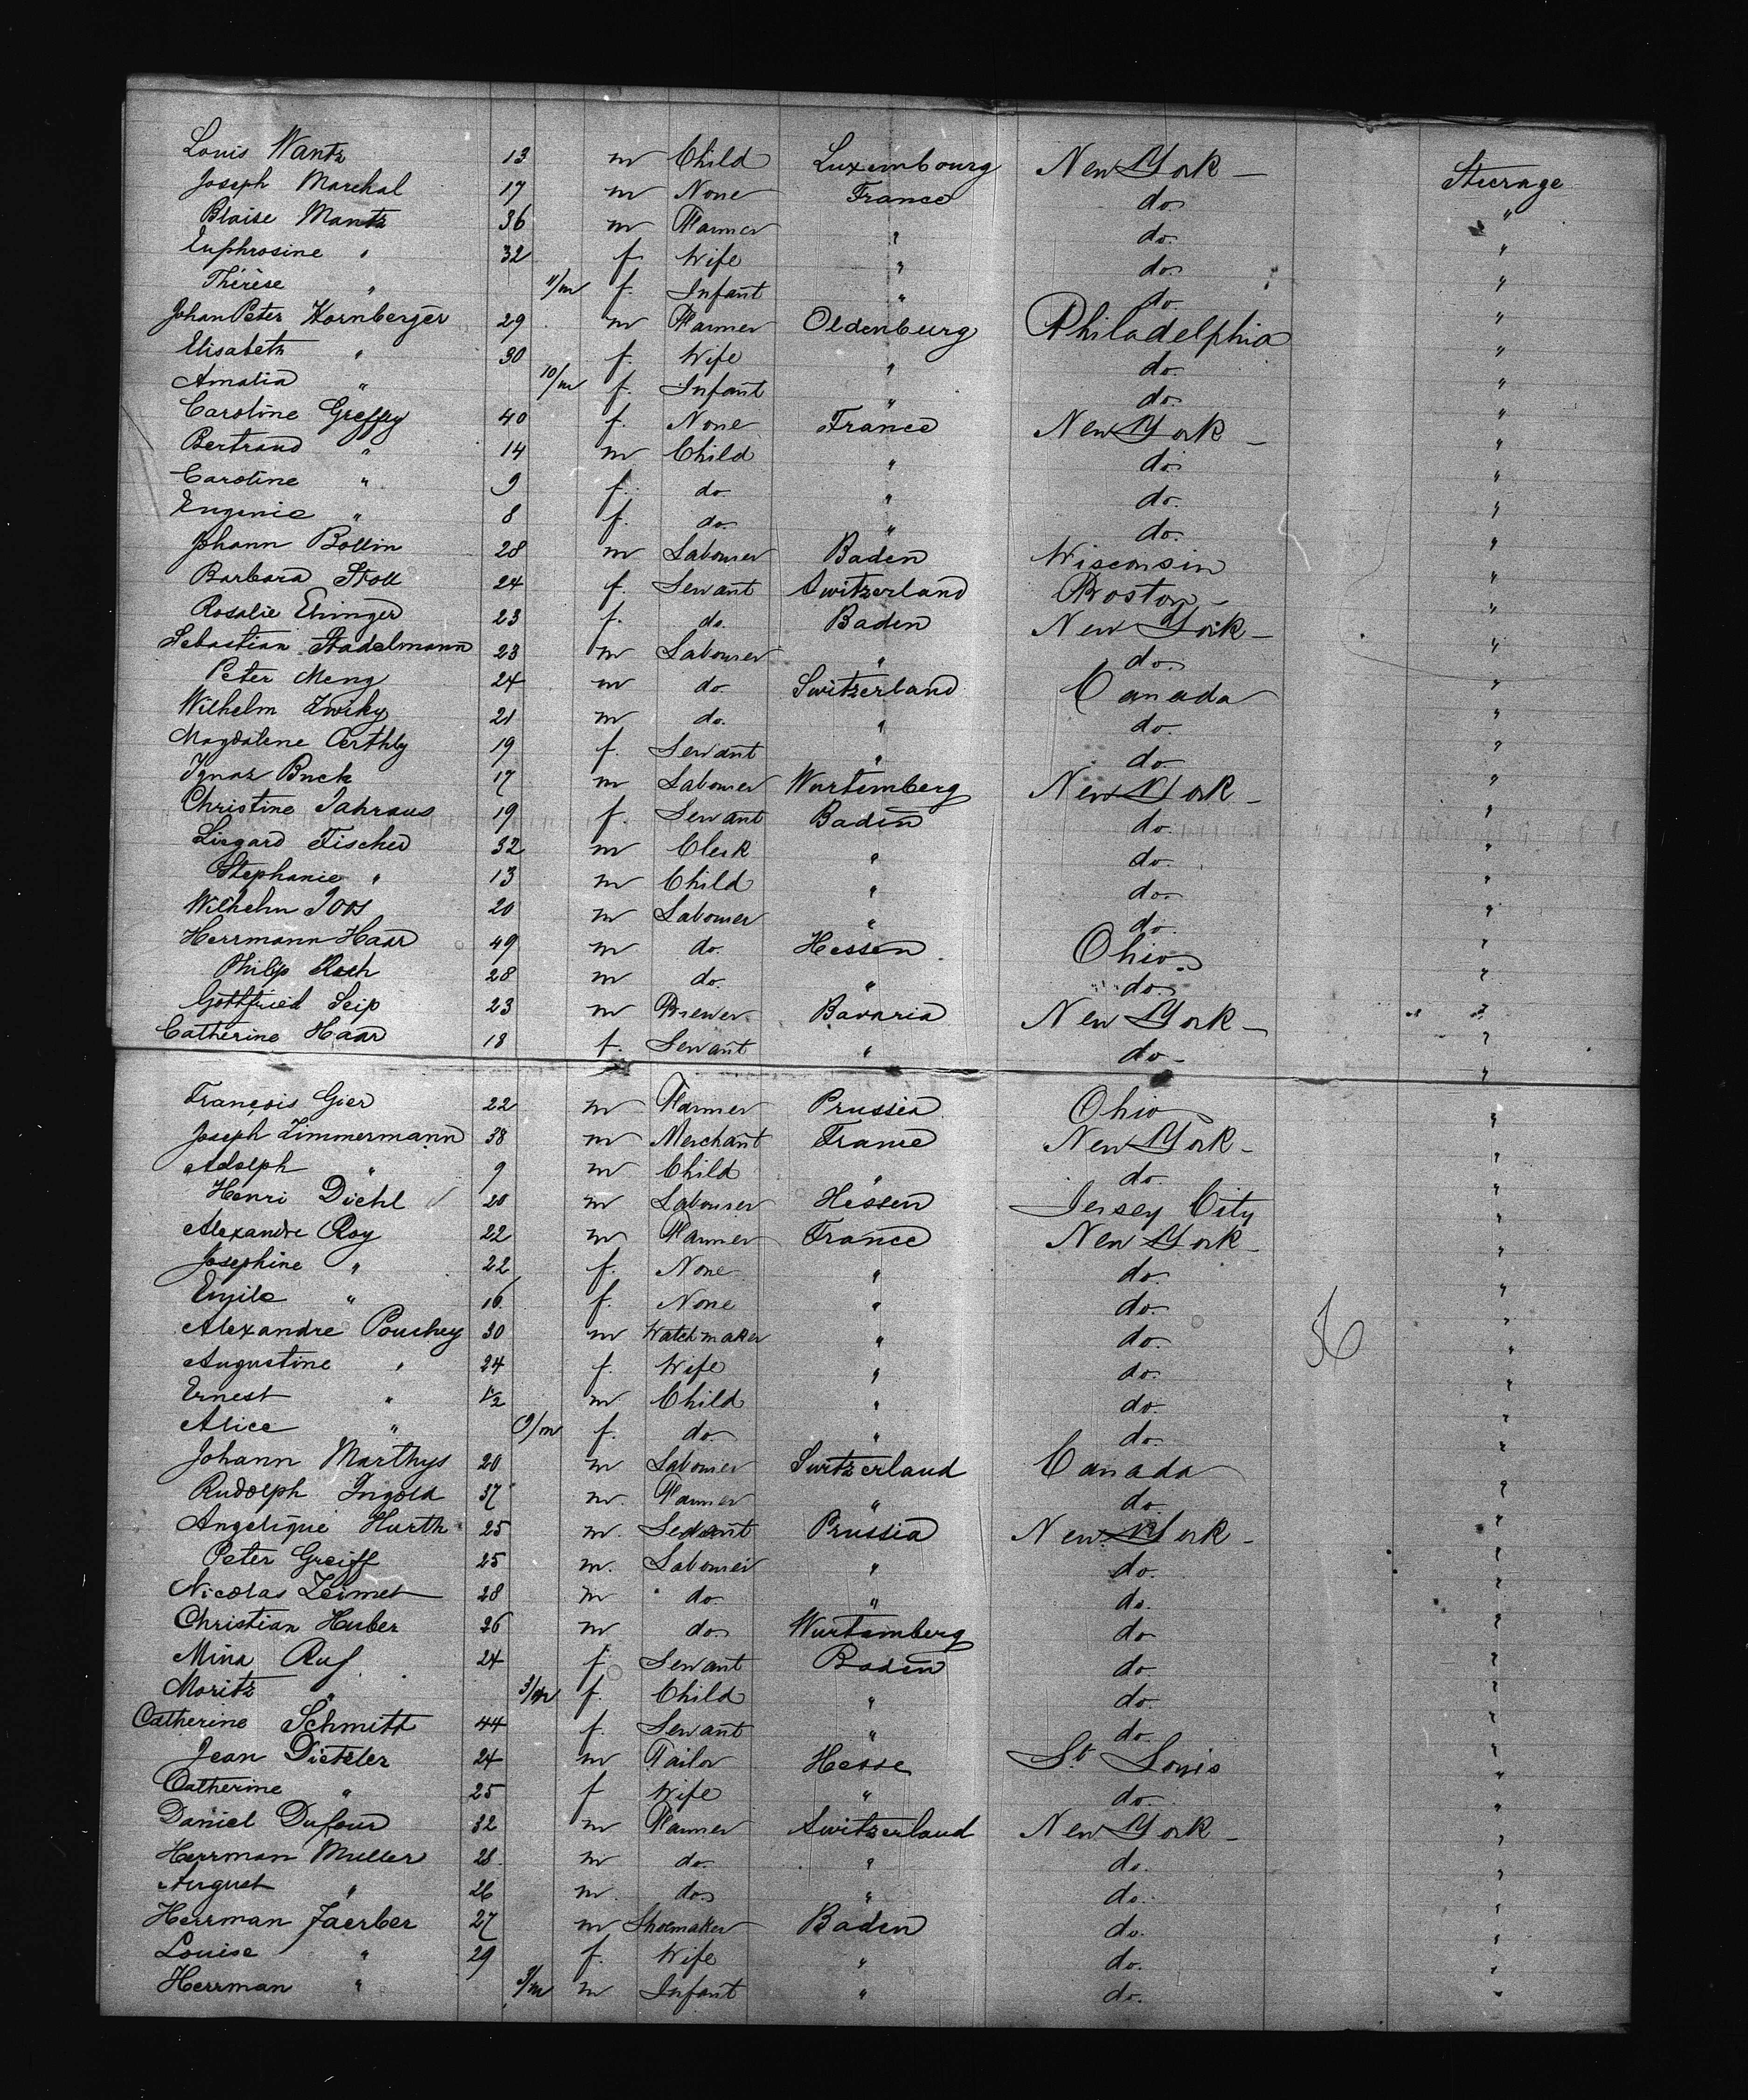 Louis Wantz 13 m Child Luxembourg New York — Steerage
Joseph Marchal 17 m None France do. "
Blaise Mantz 36 m Farmer " do. "
Euphrosine " 32 f. Wife " do. "
Thérèse " 11/m f. Infant " do. "
Johan Peter Hornberger 29 m Farmer Oldenburg Philadelphia "
Elisabeth " 30 f. Wife " do. "
Amalia " 10/m f. Infant " do. "
Caroline Greffey 40 f. None France New York — "
Bertrand " 14 m Child " do. "
Caroline " 9 f. do. " do. "
Eugenie " 8 f. do. " do. "
Johann Bollin 28 m Labourer Baden Wisconsin "
Barbara Stoll 24 f. Servant Switzerland Boston — "
Rosalie Ehinger 23 f. do. Baden New York — "
Sebastian Stadelmann 23 m Labourer " do. "
Peter Meng 24 m do. Switzerland Canada "
Wilhelm Zwiky 21 m do. " do. "
Magdalene Oerthly 19 f. Servant " do. "
Ignaz Buck 17 m Labourer Wurtemberg New York — "
Christine Jahraus 19 f. Servant Baden do. "
Lisgard Fischer 32 m Clerk " do. "
Stephanie " 13 m Child " do. "
Wilhelm Joos 20 m Labourer " do. "
Herrmann Haar 49 m do. Hessen Ohio "
Philip 28 m do. " do. "
Gottfried Seip 23 m Brewer Bavaria New York — "
Catherine Haar 18 f. Servant " do — "
François Gier 22 m Farmer Prussia Ohio "
Joseph Zimmermann 38 m Merchant France New York — "
Adolph " 9 m Child " do. "
Henri Diehl 20 m Labourer Hessen Jersey City "
Alexandre Roy 22 m Farmer France New York — "
Josephine " 22 f. None " do. "
Emile " 16 f. None " do. "
Alexandre Pouchey 30 m Watchmaker " do. 56 "
Augustine " 24 f. Wife " do. "
Ernest " 1½ m Child " do. "
Alice " 9/m f. do. " do. "
Johann Marthys 20 m Labourer Switzerland Canada "
Rudolph Ingold 37 m. Farmer " do. "
Angelique Hurth 25 m. Servant Prussia New York — "
Peter Greiff 25 m. Labourer " do. "
Nicolas Zeimet 28 m do " do. "
Christian Huber 26 m do. Wurtemberg do "
Mina Ruf 24 f. Servant Baden do "
Moritz " 3/m f. Child " do. "
Catherine Schmitt 44 f. Servant " do. "
Jean Dietzler 24 m Tailor Hesse St. Louis "
Catherine " 25 f Wife " do. "
Daniel Dufour 32 m Farmer Switzerland New York — "
Herrman Muller 28 m do. " do. "
August " 26 m. do. " do. "
Herrman Faerber 27 m Shoemaker Baden do. "
Louise " 29 f. Wife " do. "
Herrman " 9/m m Infant " do. "